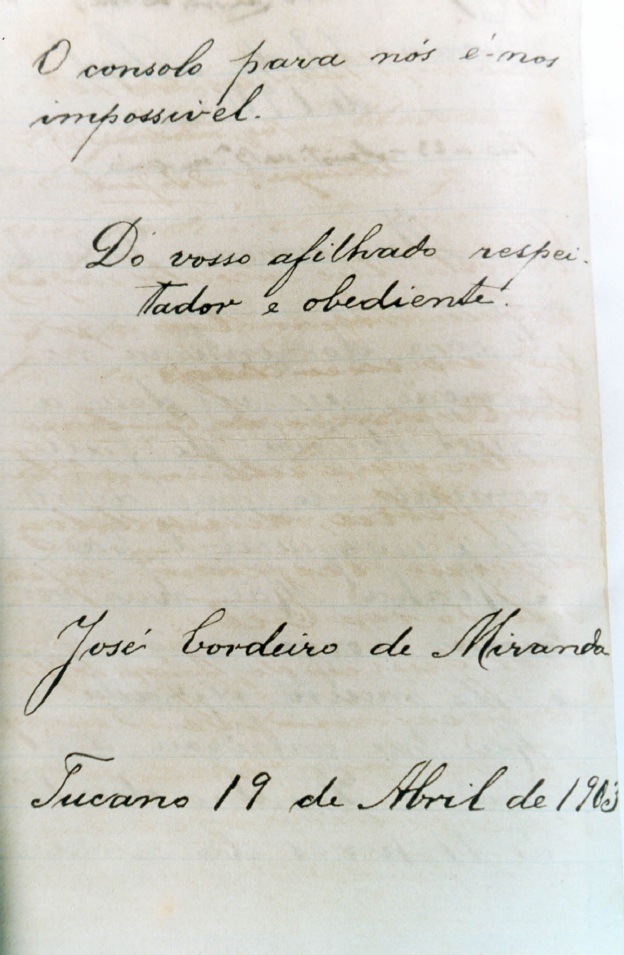 O consolo para nós é-nos
impossivel.
Do vosso afilhado respei-
tador e obediente.
José Cordeiro de Miranda
Tucano 19 de Abril de 1903